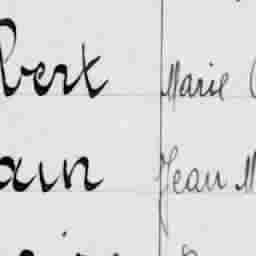 bert Marie
ain Jean M